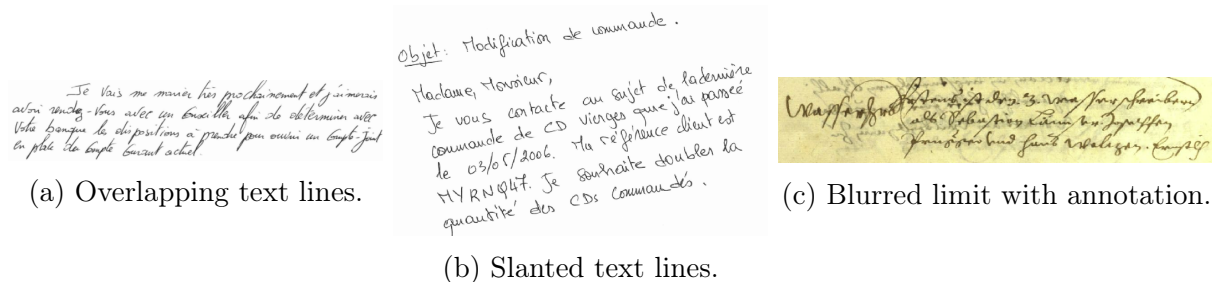 Je Vais me marier très prochainement et j'aimerais
avoir rendez-Vous avec un Conseiller afin de déterminer avec
Votre banque les dispositions à prendre pour ouvrir un Compte-Joint
en place du Compte Courant actuel.
(a) Overlapping text lines.
Objet: Modification de commande.
Madame, Monsieur,
Je vous contacte au sujet de la dernière
commande de CD vierges que j'ai passée
le 03/05/2006. Ma référence client est
MYRNQ47. Je souhaite doubler la
quantité des CDs commandés.
(b) Slanted text lines.
den 3.
als Sebastian
und hans
(c) Blurred limit with annotation.